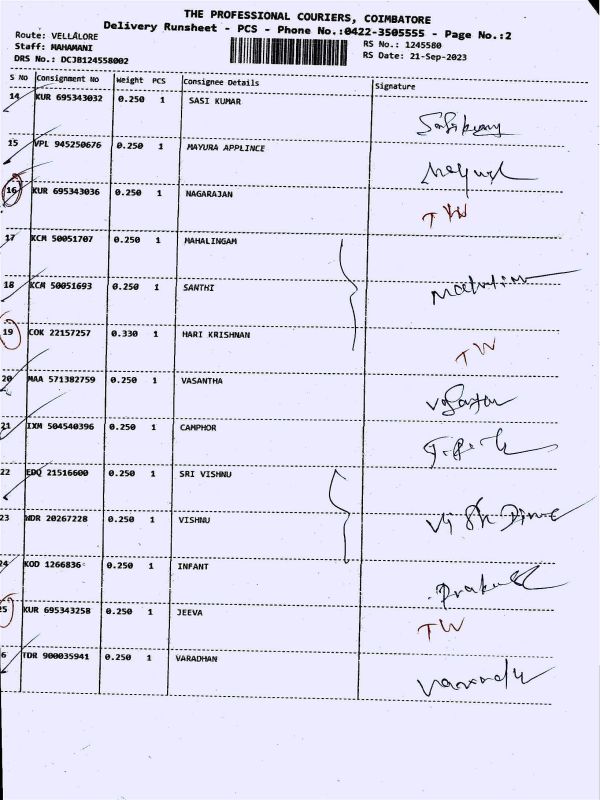 THE PROFESSIONAL COURIERS, COIMBATORE
Delivery Runsheet - PCS - Phone No.:0422-3505555 - Page No.:2
Route: VELLALORE
Staff: MAHAMANI
DRS No.: DCJB124558002
RS No.: 1245580
RS Date: 21-Sep-2023
S No Consignment No Weight PCS Consignee Details Signature
14 KUR 695343032 0.250 1 SASI KUMAR
15 VPL 945250676 0.250 1 MAYURA APPLINCE
16 KUR 695343036 0.250 1 NAGARAJAN TW
17 KCM 50051707 0.250 1 MAHALINGAM
18 KCM 50051693 0.250 1 SANTHI
19 COK 22157257 0.330 1 HARI KRISHNAN TW
20 MAA 571382759 0.250 1 VASANTHA
21 IXM 504540396 0.250 1 CAMPHOR
22 EDQ 21516600 0.250 1 SRI VISHNU
23 NDR 20267228 0.250 1 VISHNU
24 KOD 1266836 0.250 1 INFANT
25 KUR 695343258 0.250 1 JEEVA TW
6 TDR 900035941 0.250 1 VARADHAN